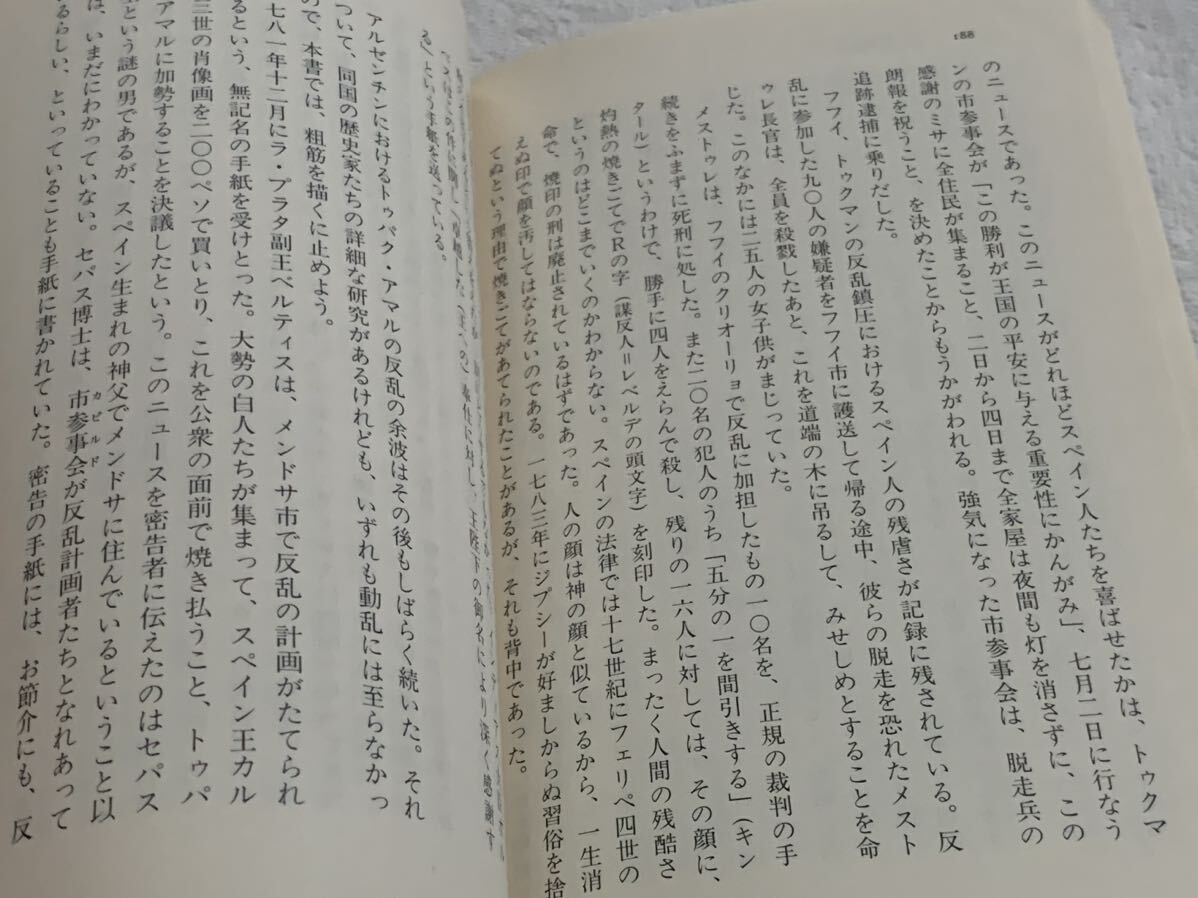 188
のニュースであった。このニュースがどれほどスペイン人たちを喜ばせたかは、トゥクマ
ンの市参事会が「この勝利が王国の平安に与える重要性にかんがみ」、七月二日に行なう
感謝のミサに全住民が集まること、二日から四日まで全家屋は夜間も灯を消さずに、この
朗報を祝うこと、を決めたことからもうかがわれる。強気になった市参事会は、脱走兵の
追跡逮捕に乗りだした。
フフイ、トゥクマンの反乱鎮圧におけるスペイン人の残虐さが記録に残されている。反
乱に参加した九〇人の嫌疑者をフフイ市に護送して帰る途中、彼らの脱走を恐れたメスト
ゥレ長官は、全員を殺戮したあと、これを道端の木に吊るして、みせしめとすることを命
じた。このなかには二五人の女子供がまじっていた。
メストゥレは、フフイのクリオーリョで反乱に加担したもの一〇名を、正規の裁判の手
続きをふまずに死刑に処した。また二〇名の犯人のうち「五分の一を間引きする」(キン
タール)というわけで、勝手に四人をえらんで殺し、残りの一六人に対しては、その顔に、
灼熱の焼きごてでRの字(謀反人=レベルデの頭文字)を刻印した。まったく人間の残酷さ
というのはどこまでいくのかわからない。スペインの法律では十七世紀にフェリペ四世の
命で、焼印の刑は廃止されているはずであった。人の顔は神の顔と似ているから、一生消
えぬ印で顔を汚してはならないのである。一七八三年にジプシーが好ましからぬ習俗を捨
てぬという理由で焼きごてがあてられたことがあるが、それも背中であった。
王陛下の御名により深く感謝す
る〉という手紙を送っている。
アルゼンチンにおけるトゥパク・アマルの反乱の余波はその後もしばらく続いた。それ
ついて、同国の歴史家たちの詳細な研究があるけれども、いずれも動乱には至らなかっ
ので、本書では、粗筋を描くに止めよう。
七八一年十二月にラ・プラタ副王ベルティスは、メンドサ市で反乱の計画がたてられ
るという、無記名の手紙を受けとった。大勢の白人たちが集まって、スペイン王カル
三世の肖像画を二〇〇ペソで買いとり、これを公衆の面前で焼き払うこと、トゥパ
アマルに加勢することを決議したという。このニュースを密告者に伝えたのはセパス
という謎の男であるが、スペイン生まれの神父でメンドサに住んでいるということ以
は、いまだにわかっていない。セパス博士は、市参事会カビルドが反乱計画者たちとなれあって
るらしい、といっていることも手紙に書かれていた。密告の手紙には、お節介にも、反